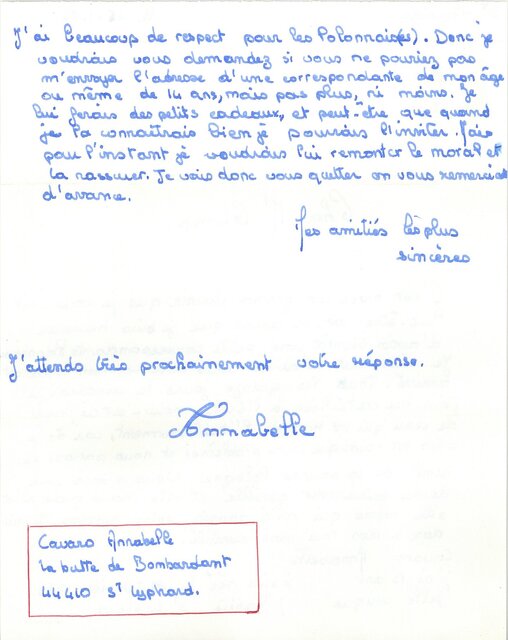 J'ai beaucoup de respect pour les Polonnais(es). Donc je
voudrais vous demandez si vous ne pouriez pas
m'envoyer l'adresse d'une correspondante de mon âge
ou même de 14 ans, mais pas plus, ni moins. Je
lui ferais des petits cadeaux, et peut-être que quand
je la connaîtrais bien je pourrais l'inviter. Mais
pour l'instant je voudrais lui remonter le moral et
la rassurer. Je vais donc vous quitter en vous remerciant
d'avance.
Mes amitiés les plus
sincères
J'attends très prochainement votre réponse.
Annabelle
Cavaro Annabelle
la butte de Bombardant
44410 St Lyphard.